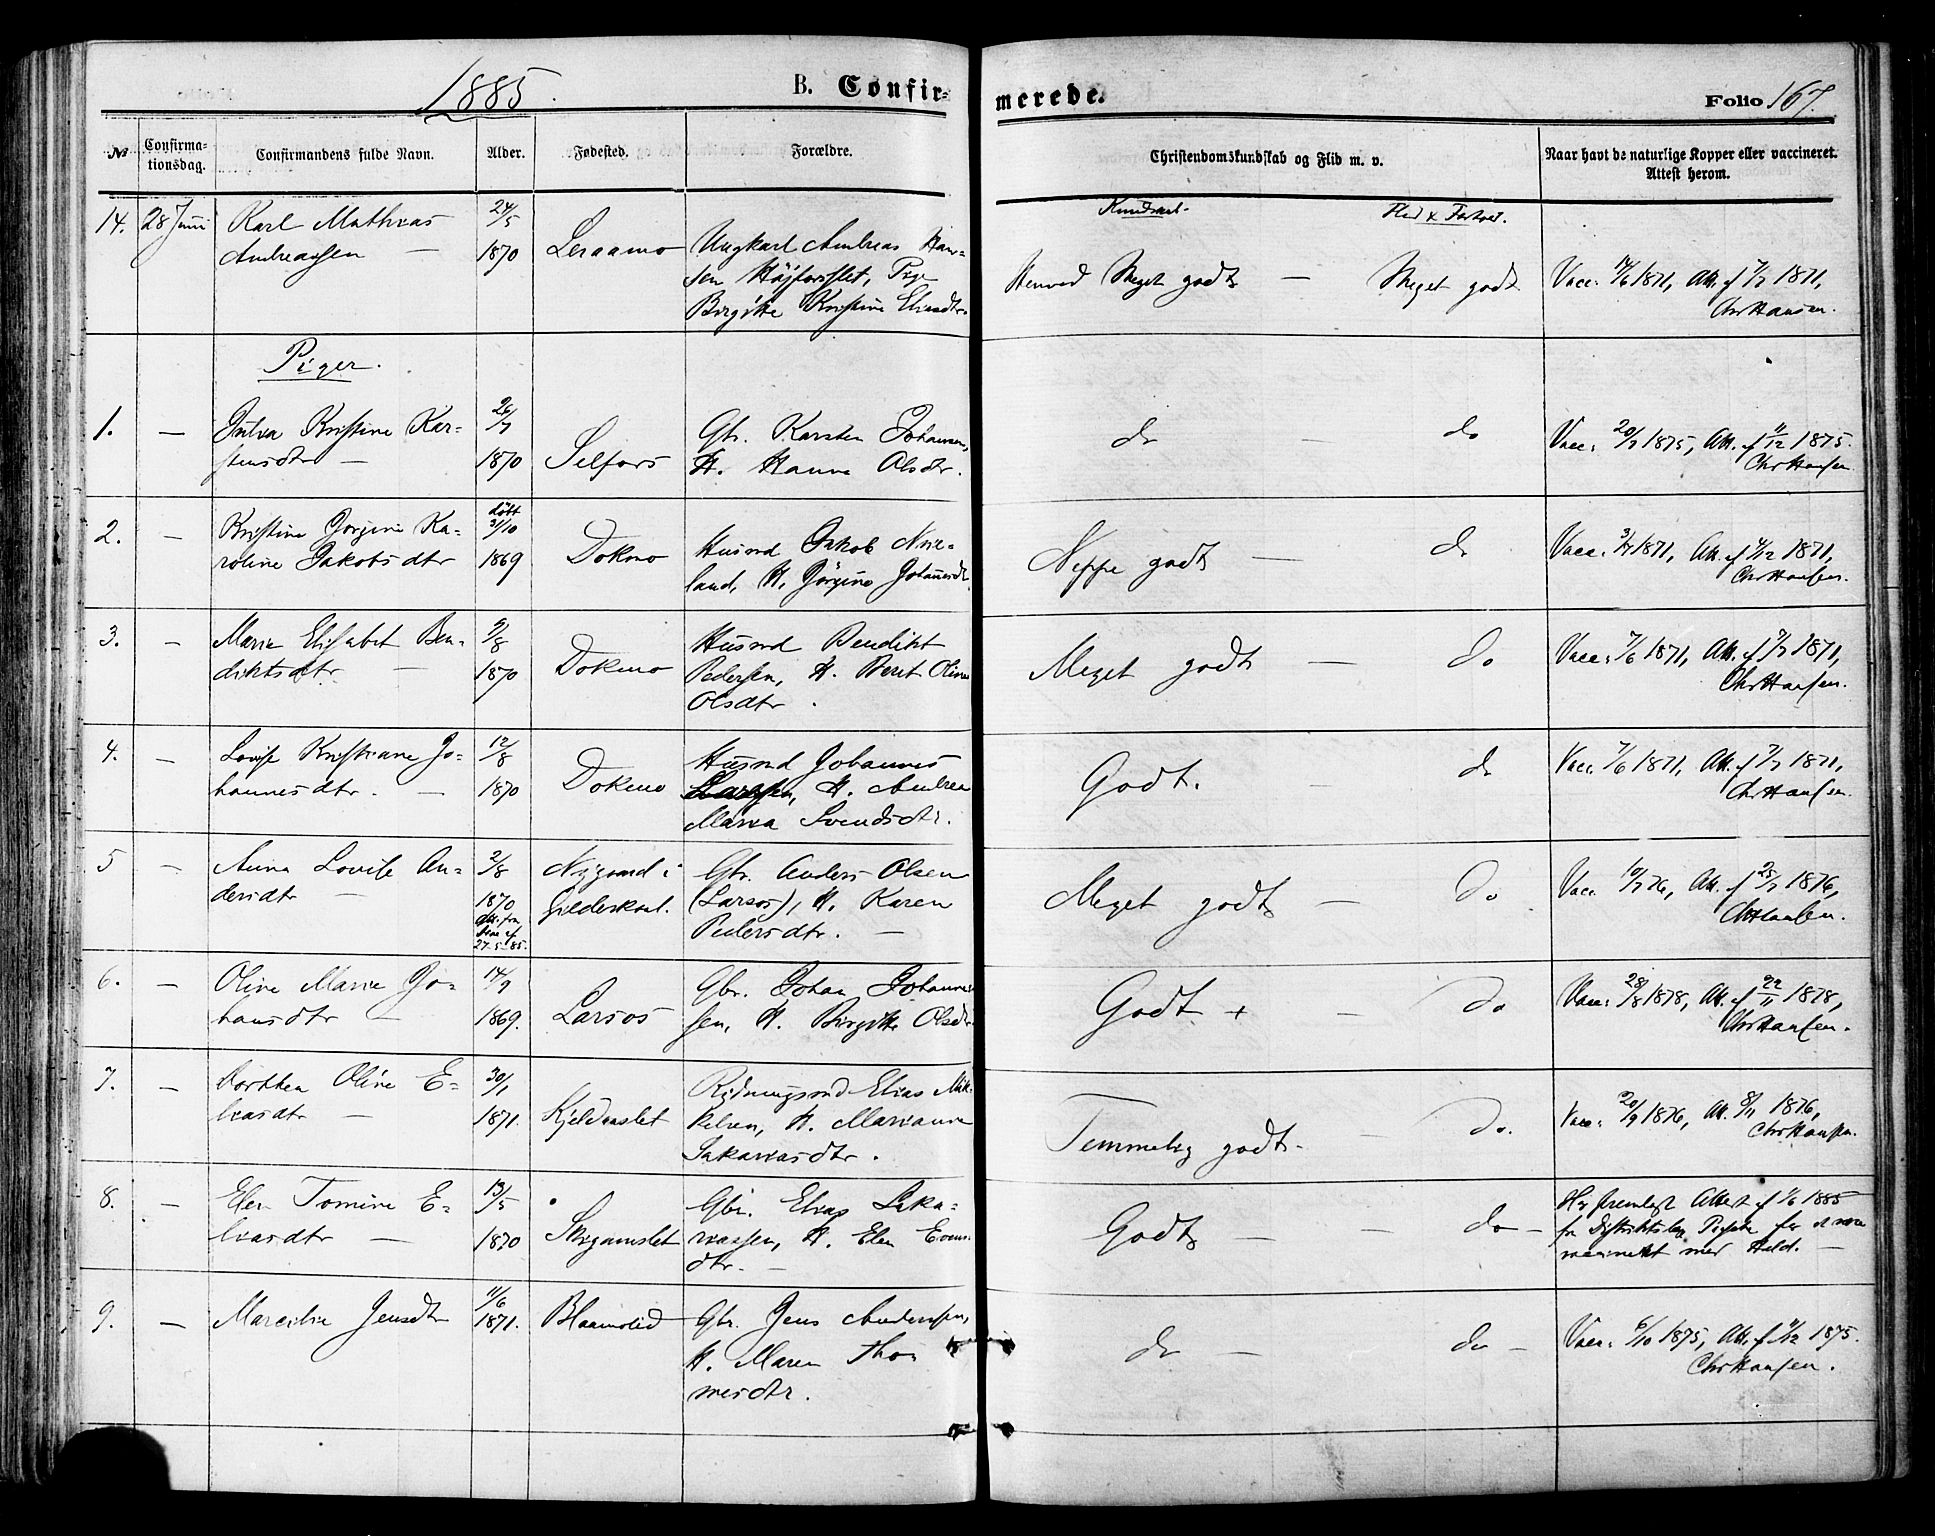 1885.
B. Confirmerede.
Folio 167.
№ Confirmationsdag. Confirmandens fulde Navn. Alder. Fødested. Forældre. Christendomskundskab og Flid m. v. Naar havt de naturlige Kopper eller vaccineret. Attest herom.
Kundsk. Flid & Forhol.
14. 28 Juni Karl Mathias 24/5
Andreassen — 1870 Leraamo Ungkarl Andreas Han-
sen Højforsslet, Pige
Birgitte Kristine Eliasdtr.
Henved Meget godt — Meget godt Vacc. 14/6 1871, Att. f 7/7 1871,
Chr Hansen.
Piger.
1. — Kristine Kar- 26/7
stensdtr — 1870 Selfors Gbr. Karsten Johansen,
H. Hanna Olsdtr.
do do Vacc. 20/7 1875, Att. f 11/12 1875.
Chr Hansen
2. — Kristine Jørgine Ka- døbt 31/10
roline Jakobsdtr 1869 Dokmo Husmd Jakob
land, H. Jörgine Johannesdt.
Neppe godt — do Vacc. 3/7 1871, Att. f 4/12 1871,
Chr Hansen.
3. — Marie Elisabet Ben- 9/8
diktsdtr — 1870 Dokmo Husmd Bendikt
Pedersen, H. Berit Oline
Olsdtr.
Meget godt — do Vacc. 7/6 1871, Att. f 7/7 1871,
Chr Hansen.
4. — Lovise Kristiane Jo- 12/8
hannesdtr. — 1870 Dokmo Husmd Johannes
Larssen, H. Andrea
Maria Svendsdtr.
Godt. — do Vacc. 7/6 1871, Att. f 7/7 1871,
Chr Hansen.
5 — Anna Lovise An- 2/8
dersdtr — 1870
Att. fra
27-5-85.
Nygaard i
Gildeskaal.
Gbr. Anders Olsen
(Larsos), H. Karen
Pedersdtr. —
Meget godt — do Vacc. 10/7 76, Att. f 25/7 1876,
Chr Hansen.
6. — Oline Marie Jo- 14/9
hansdtr — 1869. Larsos Gbr. Johan Johannes-
sen, H. Birgitte Olsdtr.
Godt + — do Vacc. 28/8 1878, Att. f 22/11 1878,
Chr Hansen.
7. — Dorthea Oline E- 30/1
liasdtr — 1871. Kjeldaaslet Rydningsmd Elias Mik-
kelsen, H. Marianne
Sakariasdtr.
Temmelig godt — do. Vacc. 20/9 1876, Att. 8/11 1876,
Chr Hansen.
8. — Elen Tomine E- 13/5
liasdtr — 1870 Stigamslet Gbr. Elias Saka-
riassen, H. Elen Evens-
dtr. —
Godt — do — Har fremlagt Attest f 1/6 1885
fra Distriktslæge for at være
vaccineret med Held. —
9. — Marcelie Jensdtr 11/6
1871. Blaamolid Gbr. Jens Andersen,
H. Maren Tho-
mesdtr.
do — do — Vacc. 6/10 1875, Att. f 11/12 1875.
Chr Hansen.